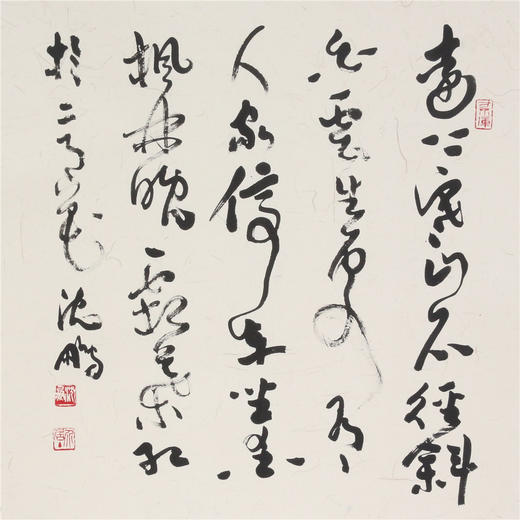 遠上寒山石徑斜
白雲生處有
人家停車坐愛
楓林晚霜葉紅
於二月花 沈鵬